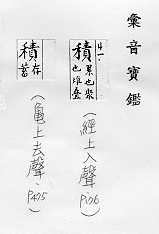 彙音寶鑑
4一
積 累也聚也堆疊
(經上入聲 P106)
積 存蓄
(龜上去聲 P475)